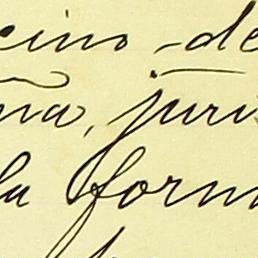 cino de
ña, juri
la form